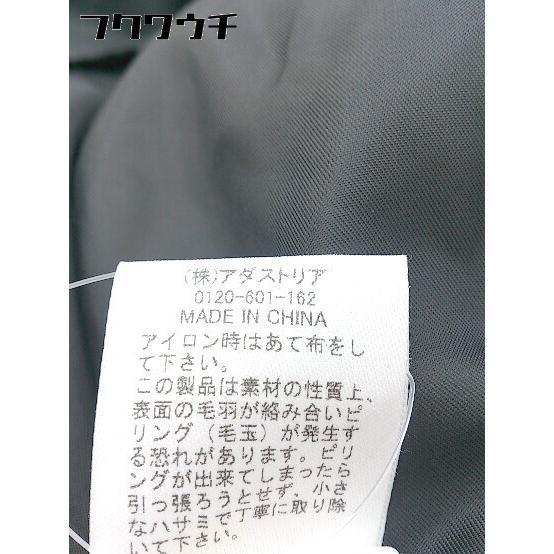 フクワウチ
(株)アダストリア
0120-601-162
MADE IN CHINA
アイロン時はあて布をし
て下さい。
この製品は素材の性質上、
表面の毛羽が絡み合いピ
リング（毛玉）が発生す
る恐れがあります。ピリ
ングが出来てしまったら
引っ張ろうとせず、小さ
なハサミで丁寧に取り除
いて下さい。